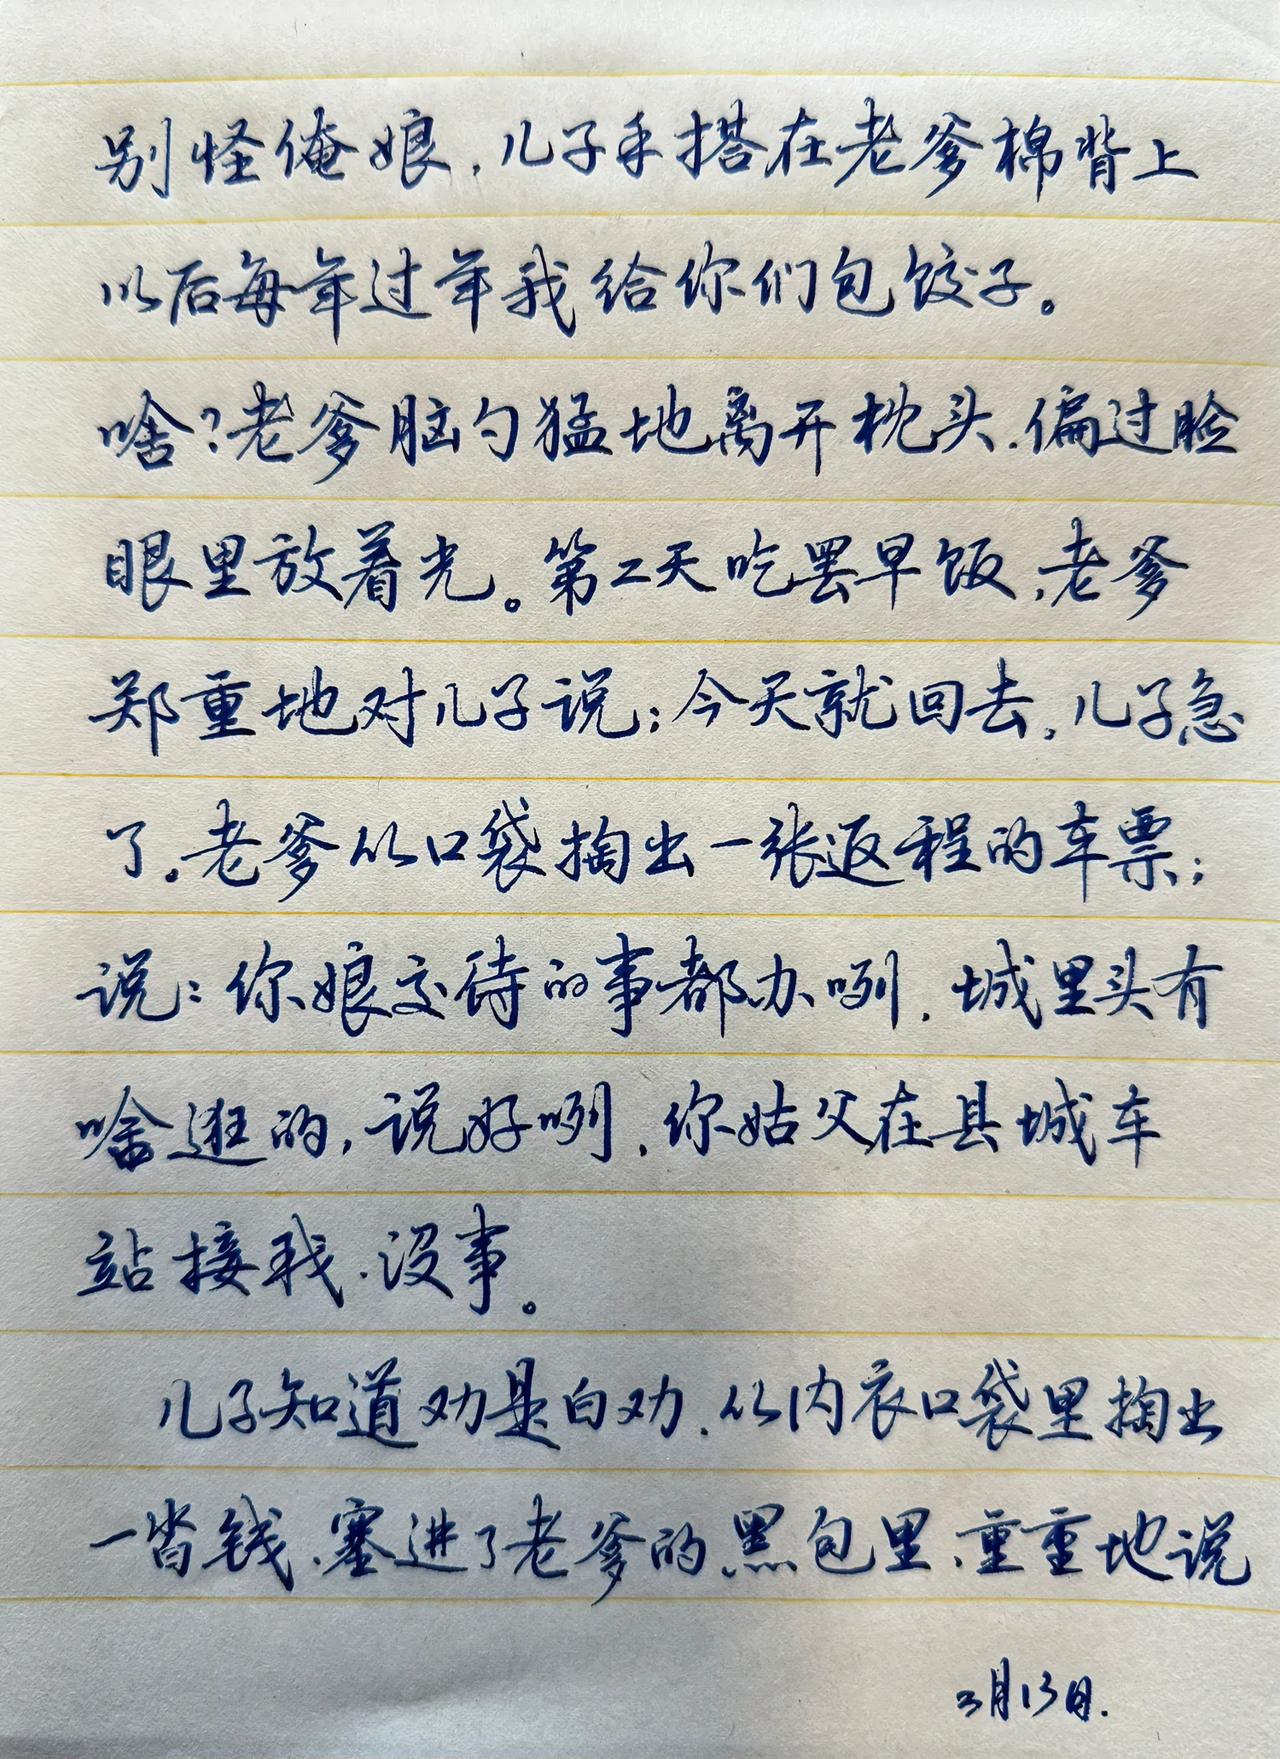 别怪俺娘，儿子手搭在老爹棉背上
以后每年过年我给你们包饺子。
啥？老爹脑勺猛地离开枕头，偏过脸
眼里放着光。第二天吃罢早饭，老爹
郑重地对儿子说：今天就回去，儿子急
了。老爹从口袋掏出一张返程的车票；
说：你娘交待的事都办咧，城里头有
啥逛的，说好咧，你姑父在县城车
站接我，没事。
儿子知道劝是白劝，从内衣口袋里掏出
一沓钱、塞进了老爹的黑包里，重重地说
2月13日.